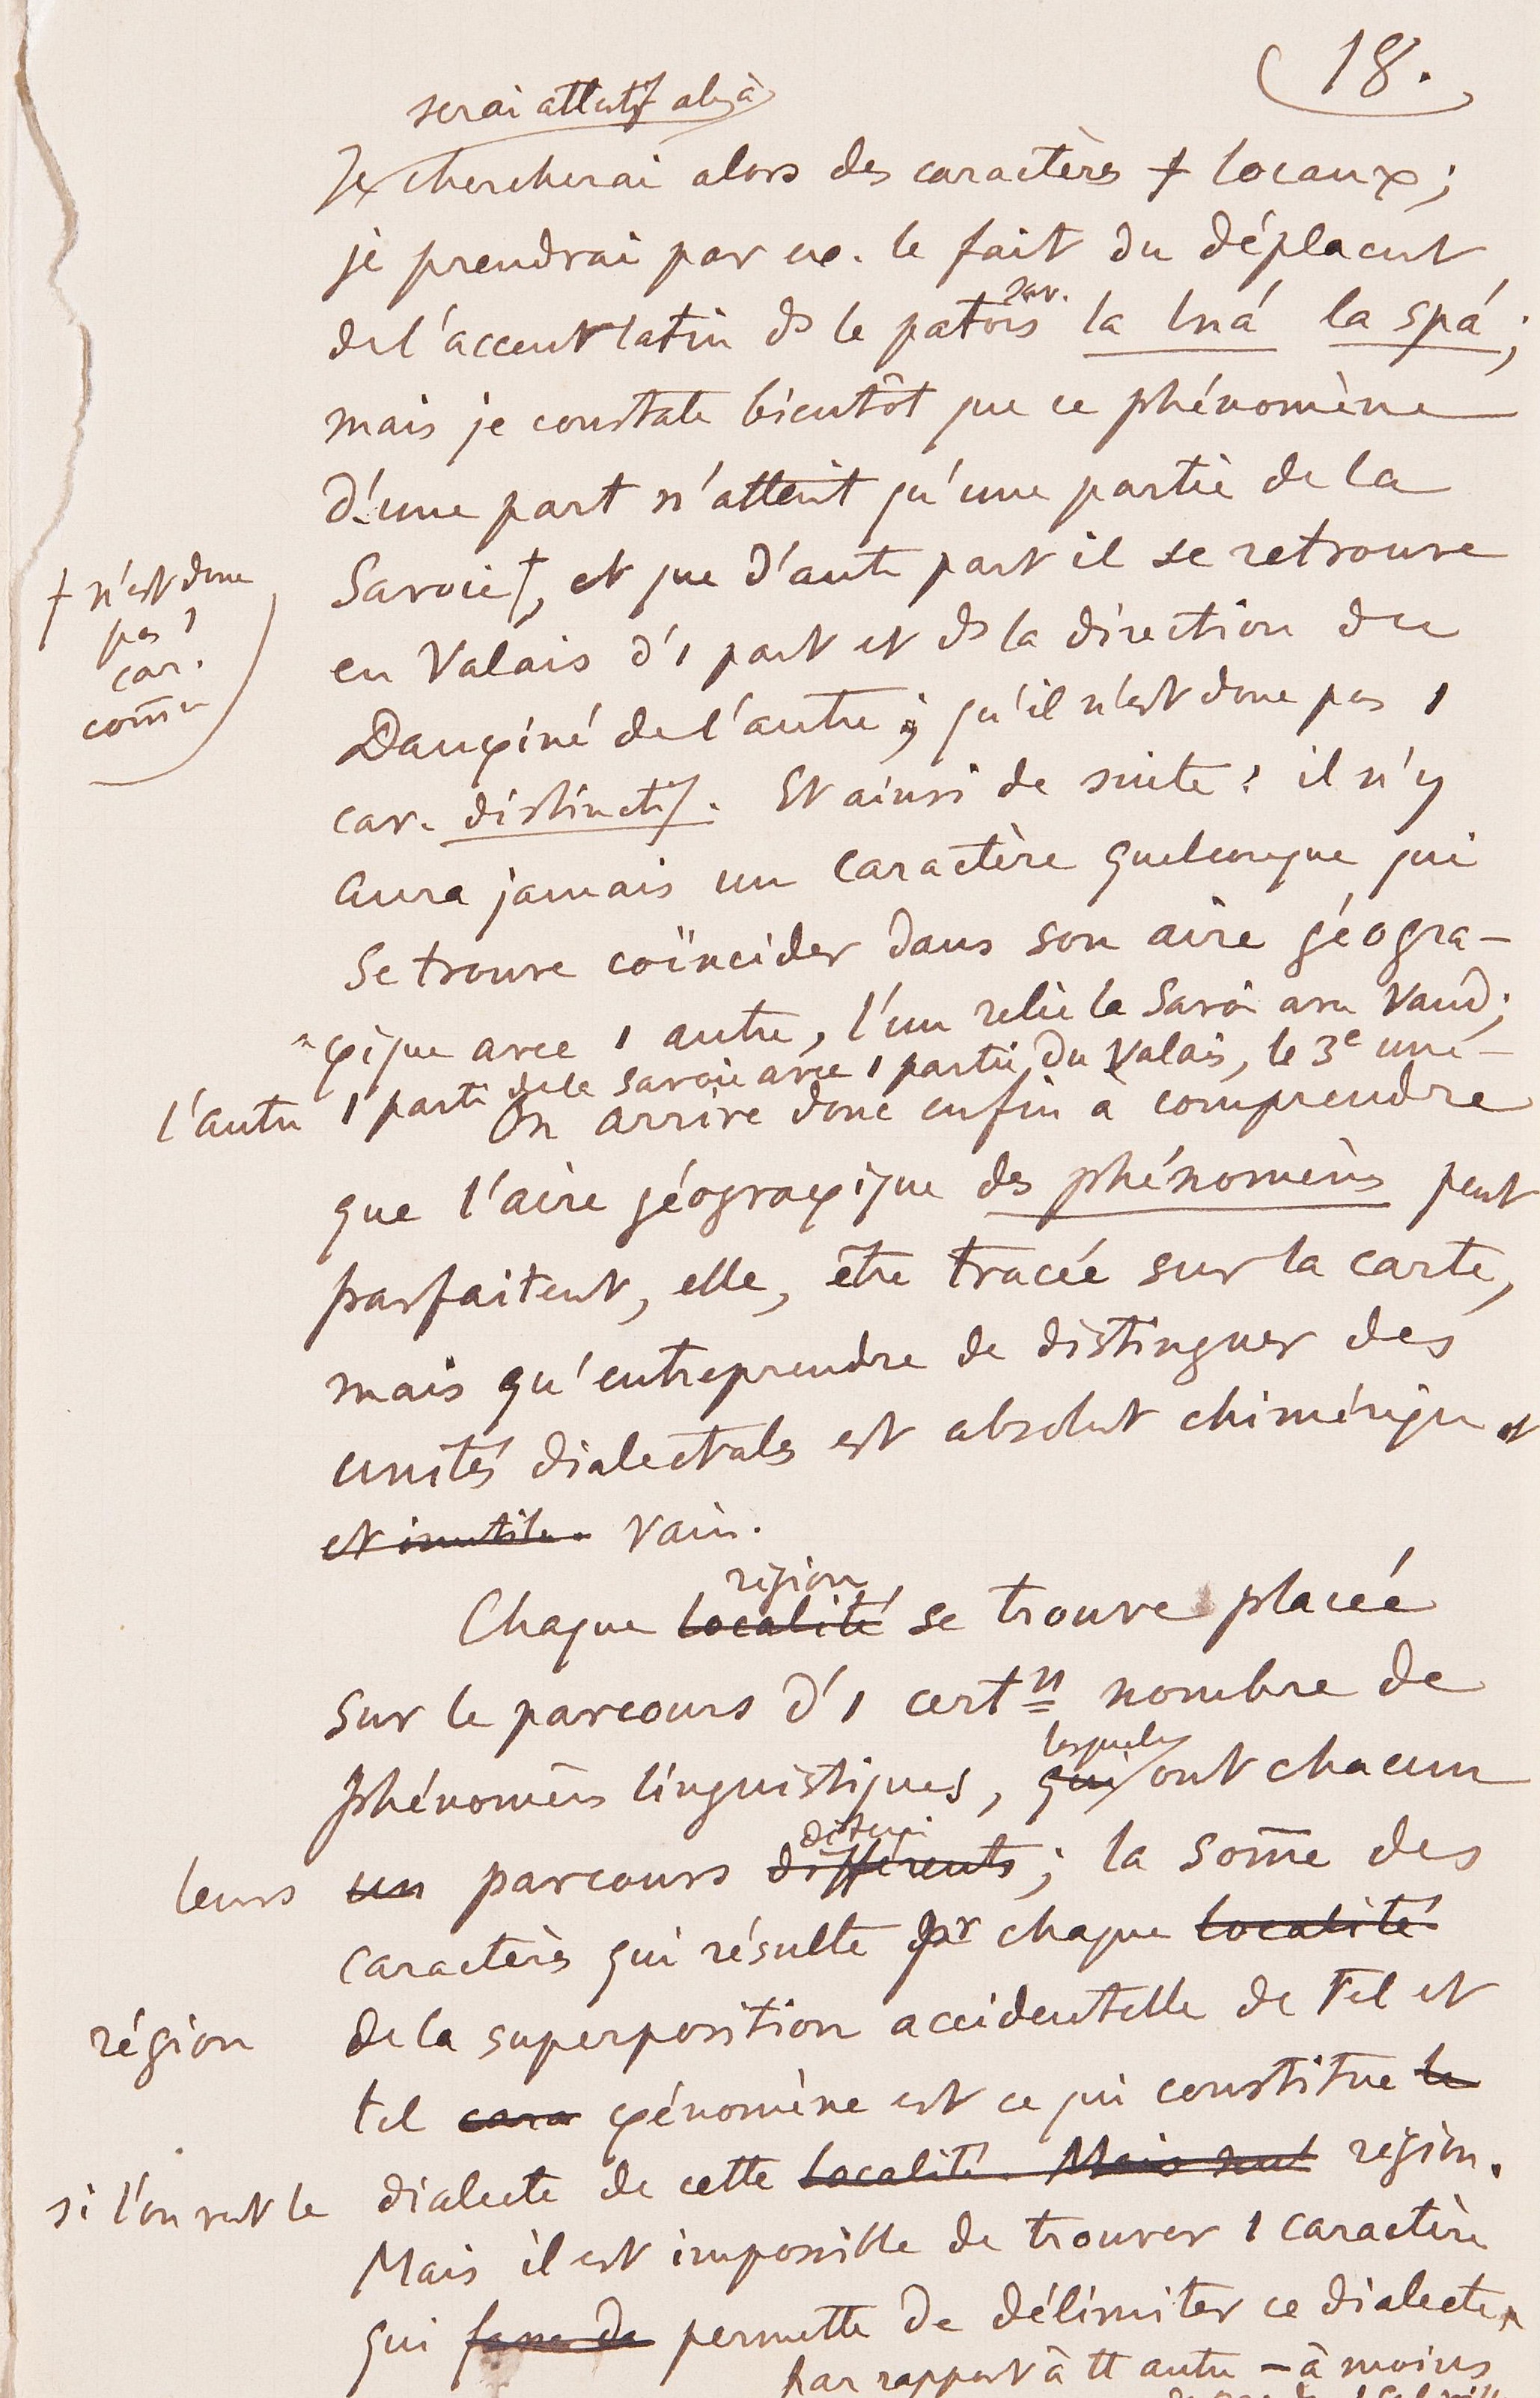 18.
serai attentif alors à
Je chercherai alors des caractères + locaux;
je prendrai par ex. le fait du déplacent
de l'accent latin ds le patois sav. la lná la spá;
mais je constate bientôt que ce phénomène
d'une part n'atteint qu'une partie de la
Savoie †, et que d'autre part il se retrouve
† n'est donc
pas 1
car.
com̄un
en Valais d'1 part et ds la direction du
Dauφiné de l'autre; qu'il n'est donc pas 1
car. distinctif. Et ainsi de suite: il n'y
aura jamais un caractère quelconque qui
se trouve coïncider dans son aire géogra-
φique avec 1 autre, l'un relie la Savoie avec Vaud;
l'autre 1 partie de la Savoie avec 1 partie du Valais, le 3e une-
On arrive donc enfin à comprendre
que l'aire géograφique des phénomènes peut
parfaitent, elle, être tracée sur la carte,
mais qu'entreprendre de distinguer des
unités dialectales est absolut chimérique et
et inutile. vain.
région
Chaque localité se trouve placée
sur le parcours d'1 certn nombre de
lesquels
phénomènes linguistiques, qui ont chacun
leurs un parcours différents; la som̄e des
caractères qui résulte pr chaque localité
région de la superposition accidentelle de tel et
tel cara φénomène est ce qui constitue le
si l'on veut le dialecte de cette localité. Mais nul région.
Mais il est impossible de trouver 1 caractère
qui fasse de permette de délimiter ce dialecte
par rapport à tt autre – à moins